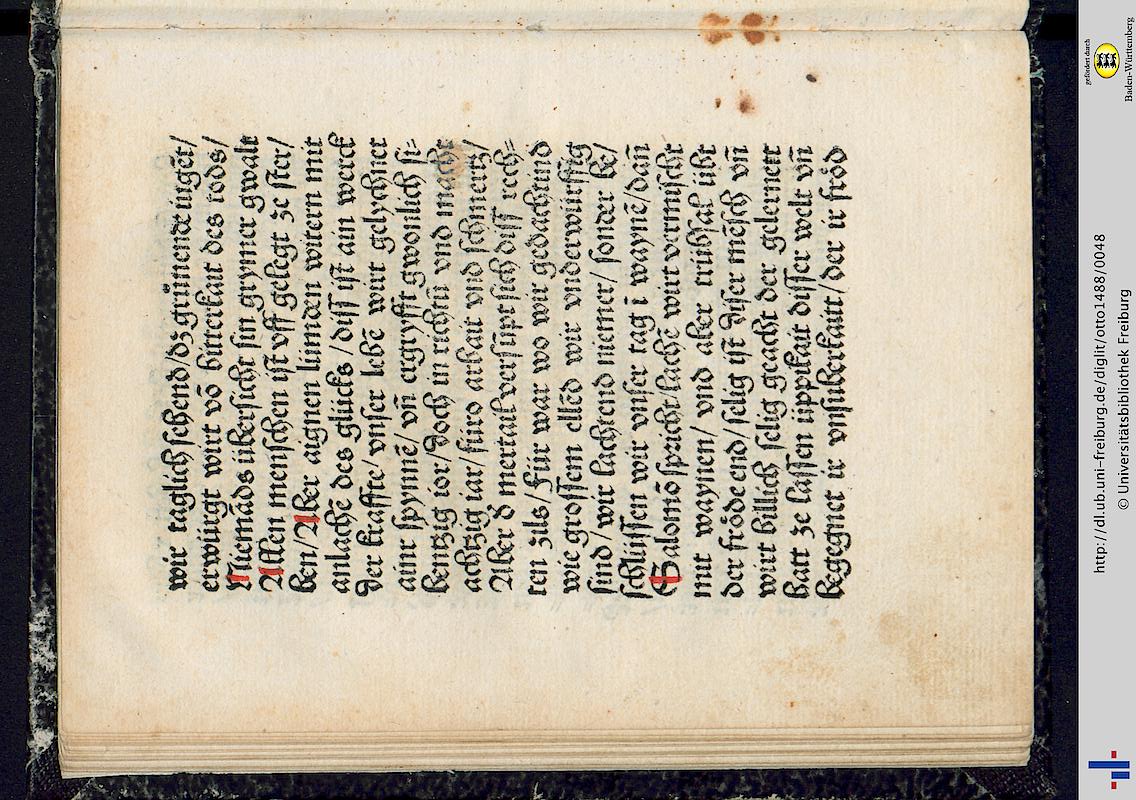 wir taglich sehend/dz grůnende iuget/
erwürgt wirt võ bitterkait des tods/
Niemãds übersicht sin grymer gwalt
Allen menschen ist vff gelegt ze ster/
ben/Aber aignen lümden witern mit
anlache des glücks/diss ist ain werck
der krafft/vnser lebẽ wirt gelychnet
ainr spynnẽ/vñ ergryfft gwonlich si=
bentzig ior/doch in richtũ vnd macht
achtzig iar/fůro arbait vnd schmertz/
Aber d mertail versüpt sich diss rech=
ten zils/Für war wo wir gedachtind
wie grossem ellẽd wir vnderwürffig
sind/wir lachtend niemer/sonder be/
schlüssen wir vnser tag ĩ waynẽ/dañ
Salomõ spricht/lachẽ wirt vermischt
mit waynen/vnd aber trübsal übt
der fröde end/selig ist diser mẽsch vñ
wirt billich selig geacht der gelernett
hatt ze lassen üppikait disser welt vñ
begegnet ir vnsuberkaitt/der ir fröd
http://dl.ub.uni-freiburg.de/diglit/otto1488/0048
© Universitätsbibliothek Freiburg
gefördert durch
Baden-Württemberg